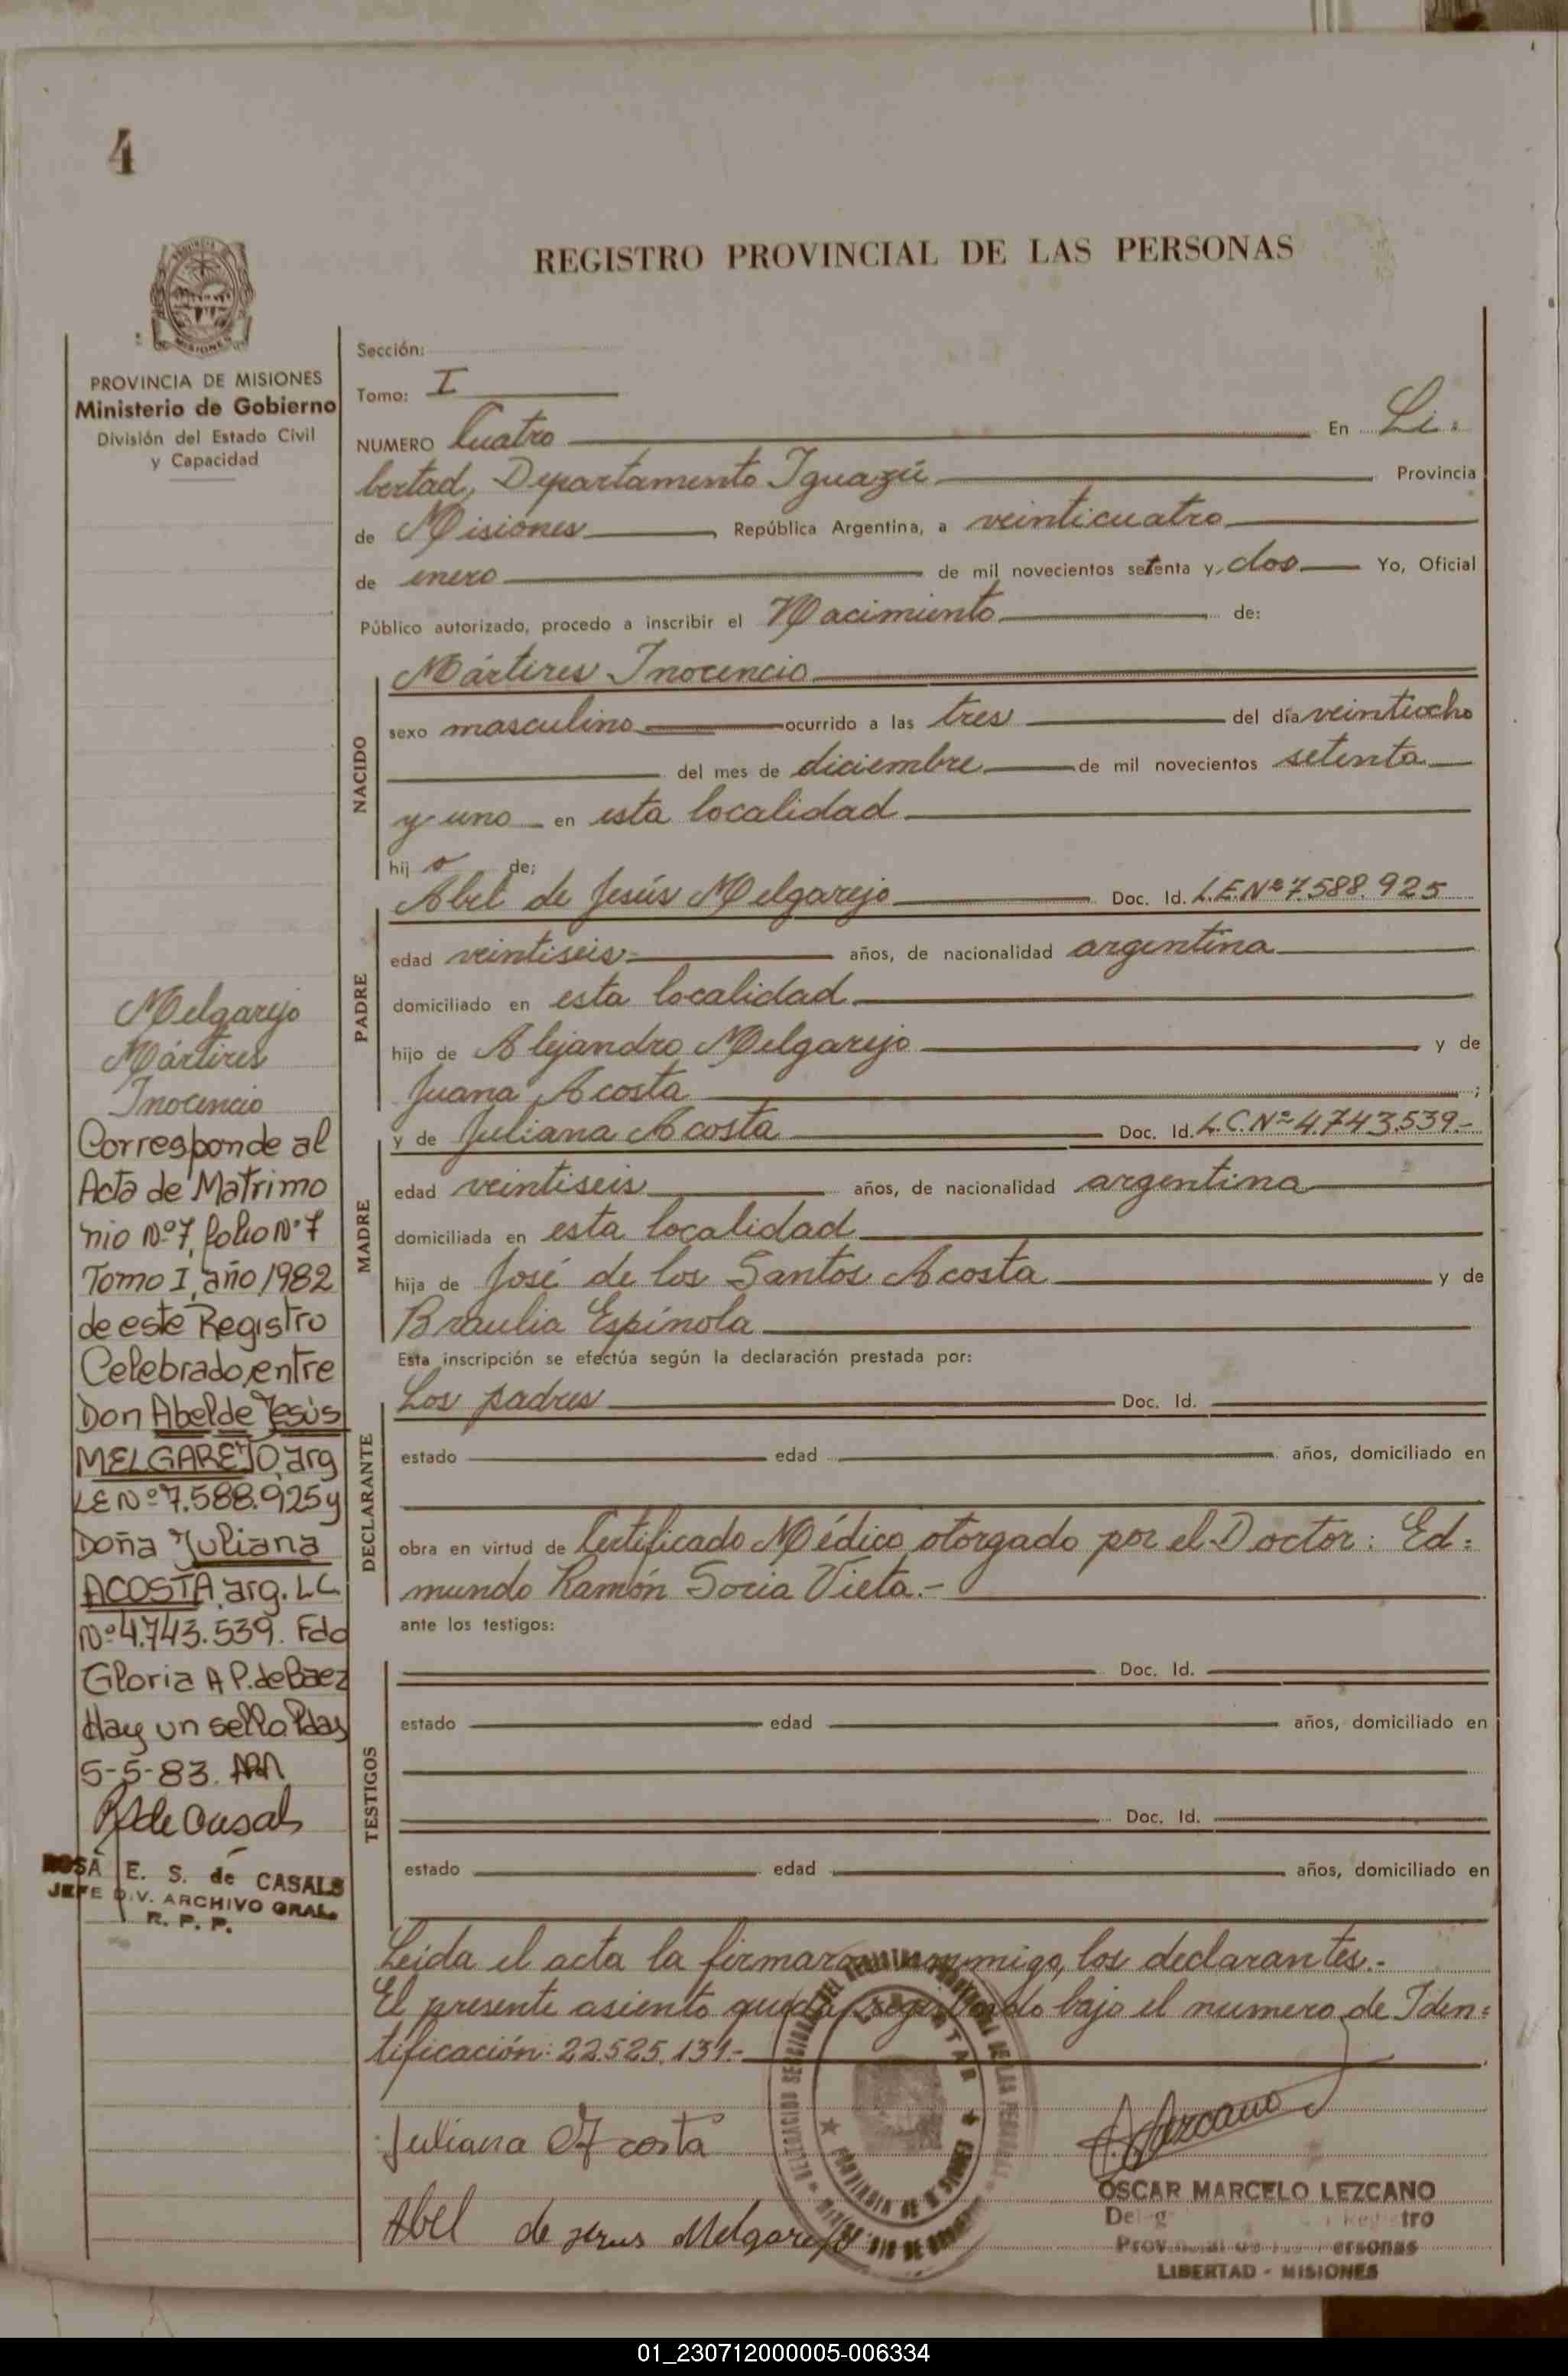 4
REGISTRO PROVINCIAL DE LAS PERSONAS
PROVINCIA DE MISIONES
Ministerio de Gobierno
División del Estado Civil
y Capacidad
Sección:
Tomo: I
NUMERO Cuatro En Li=
bertad, Departamento Iguazú Provincia
de Misiones República Argentina, a veinticuatro
de enero de mil novecientos setenta y dos Yo, Oficial
Público autorizado, procedo a inscribir el Nacimiento de:
NACIDO
Mártires Inocencio
sexo masculino ocurrido a las tres del día veintiocho
del mes de diciembre de mil novecientos setenta
y uno en esta localidad
hij o de:
PADRE
Abel de Jesús Melgarejo Doc. Id. L.E.Nº 7.588.925
edad veintiseis años, de nacionalidad argentina
domiciliado en esta localidad
hijo de Alejandro Melgarejo y de
Juana Acosta ;
MADRE
y de Juliana Acosta Doc. Id. L.C.Nº 4.743.539.-
edad veintiseis años, de nacionalidad argentina
domiciliada en esta localidad
hija de José de los Santos Acosta y de
Braulia Espínola
Esta inscripción se efectúa según la declaración prestada por:
DECLARANTE
Los padres Doc. Id.
estado edad años, domiciliado en
obra en virtud de Certificado Médico otorgado por el Doctor: Ed=
mundo Ramón Soria Vieta.-
ante los testigos:
TESTIGOS
Doc. Id.
estado edad años, domiciliado en
Doc. Id.
estado edad años, domiciliado en
Leida el acta la firmaran conmigo, los declarantes.-
El presente asiento queda registrado bajo el numero de Iden=
tificación: 22.525.131.-
Juliana Acosta
Abel de Jesus Melgarejo
Lezcano
OSCAR MARCELO LEZCANO
LIBERTAD - MISIONES
Melgarejo
Mártires
Inocencio
Corresponde al
Acta de Matrimo
nio Nº7, folio Nº7
Tomo I, año 1982
de este Registro
Celebrado, entre
Don Abel de Jesús
MELGAREJO, arg
LE Nº 7.588.925 y
Doña Juliana
ACOSTA, arg. LC
Nº 4.743.539. Fdo
Gloria A P. de Baez
Hay un sello Pdas
5-5-83.
ROSA E. S. de CASALS
JEFE DIV. ARCHIVO GRAL.
R. P. P.
01_230712000005-006334